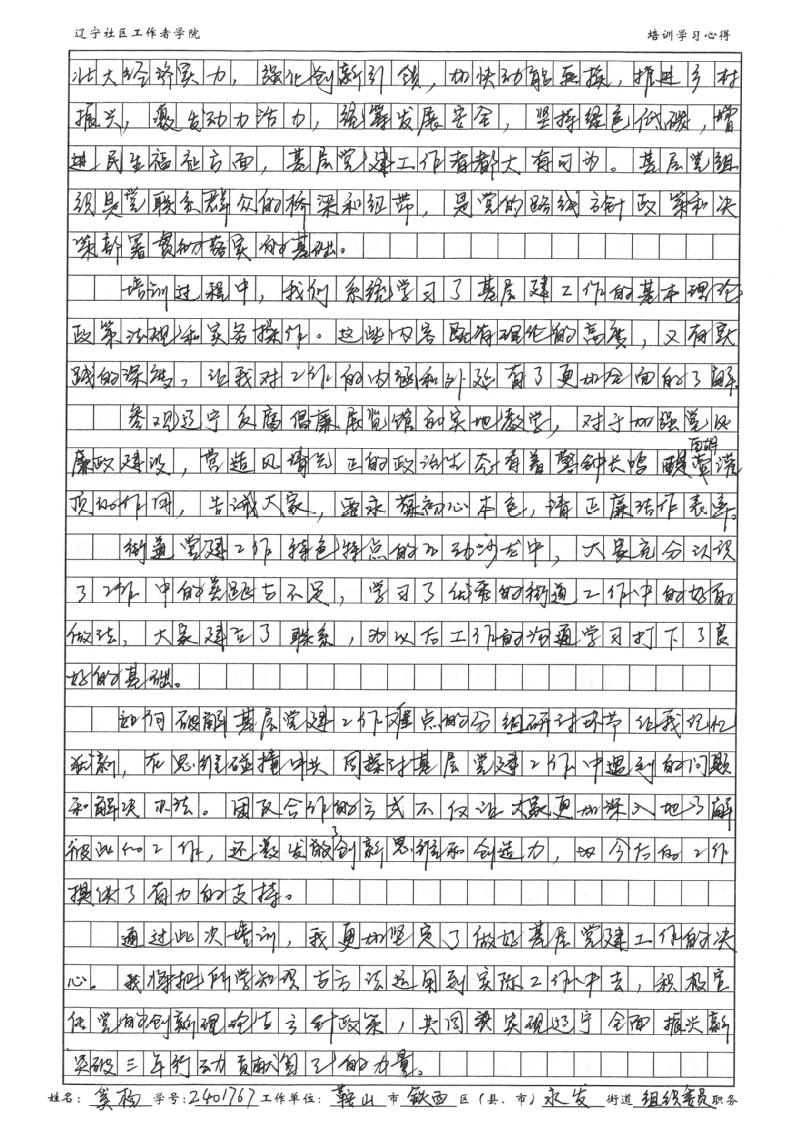 辽宁社区工作者学院 培训学习心得
壮大经济实力，强化创新引领，加快动能转换，推进乡村
振兴，激发动力活力，统筹发展安全，坚持绿色低碳，增
进民生福祉方面，基层党建工作者都大有可为。基层党组
织是党联系群众的桥梁和纽带，是党的路线方针政策和决
策部署贯彻落实的基础。
培训过程中，我们系统学习了基层建工作的基本理论
政策法规和实务操作。这些内容既有理论的高度，又有实
践的深度，让我对工作的内涵和外延有了更加全面的了解
参观辽宁反腐倡廉展览馆的实地教学，对于加强党风
廉政建设，营造风清气正的政治生态有着警钟长鸣醍醐灌
顶的作用，告诫大家，要永葆初心本色，清正廉洁作表率。
街道党建工作特色特点的互动沙龙中，大家充分认识
了工作中的差距与不足，学习了优秀的街道工作中的好的
做法，大家建立了联系，为以后工作的沟通学习打下了良
好的基础。
如何破解基层党建工作难点的分组研讨环节让我记忆
犹新，在思维碰撞中共同探讨基层党建工作中遇到的问题
和解决办法。团队合作的方式不仅让大家更加深入地了解
彼此的工作，还激发了创新思维和创造力，为今后的工作
提供了有力的支持。
通过此次培训，我更加坚定了做好基层党建工作的决
心。我将把所学知识与方法运用到实际工作中去，积极宣
传党的创新理论与方针政策，共同为实现辽宁全面振兴新
突破三年行动贡献自己的力量。
姓名：奚杨 学号：2401767 工作单位：鞍山市铁西区（县、市）永发街道组织委员职务